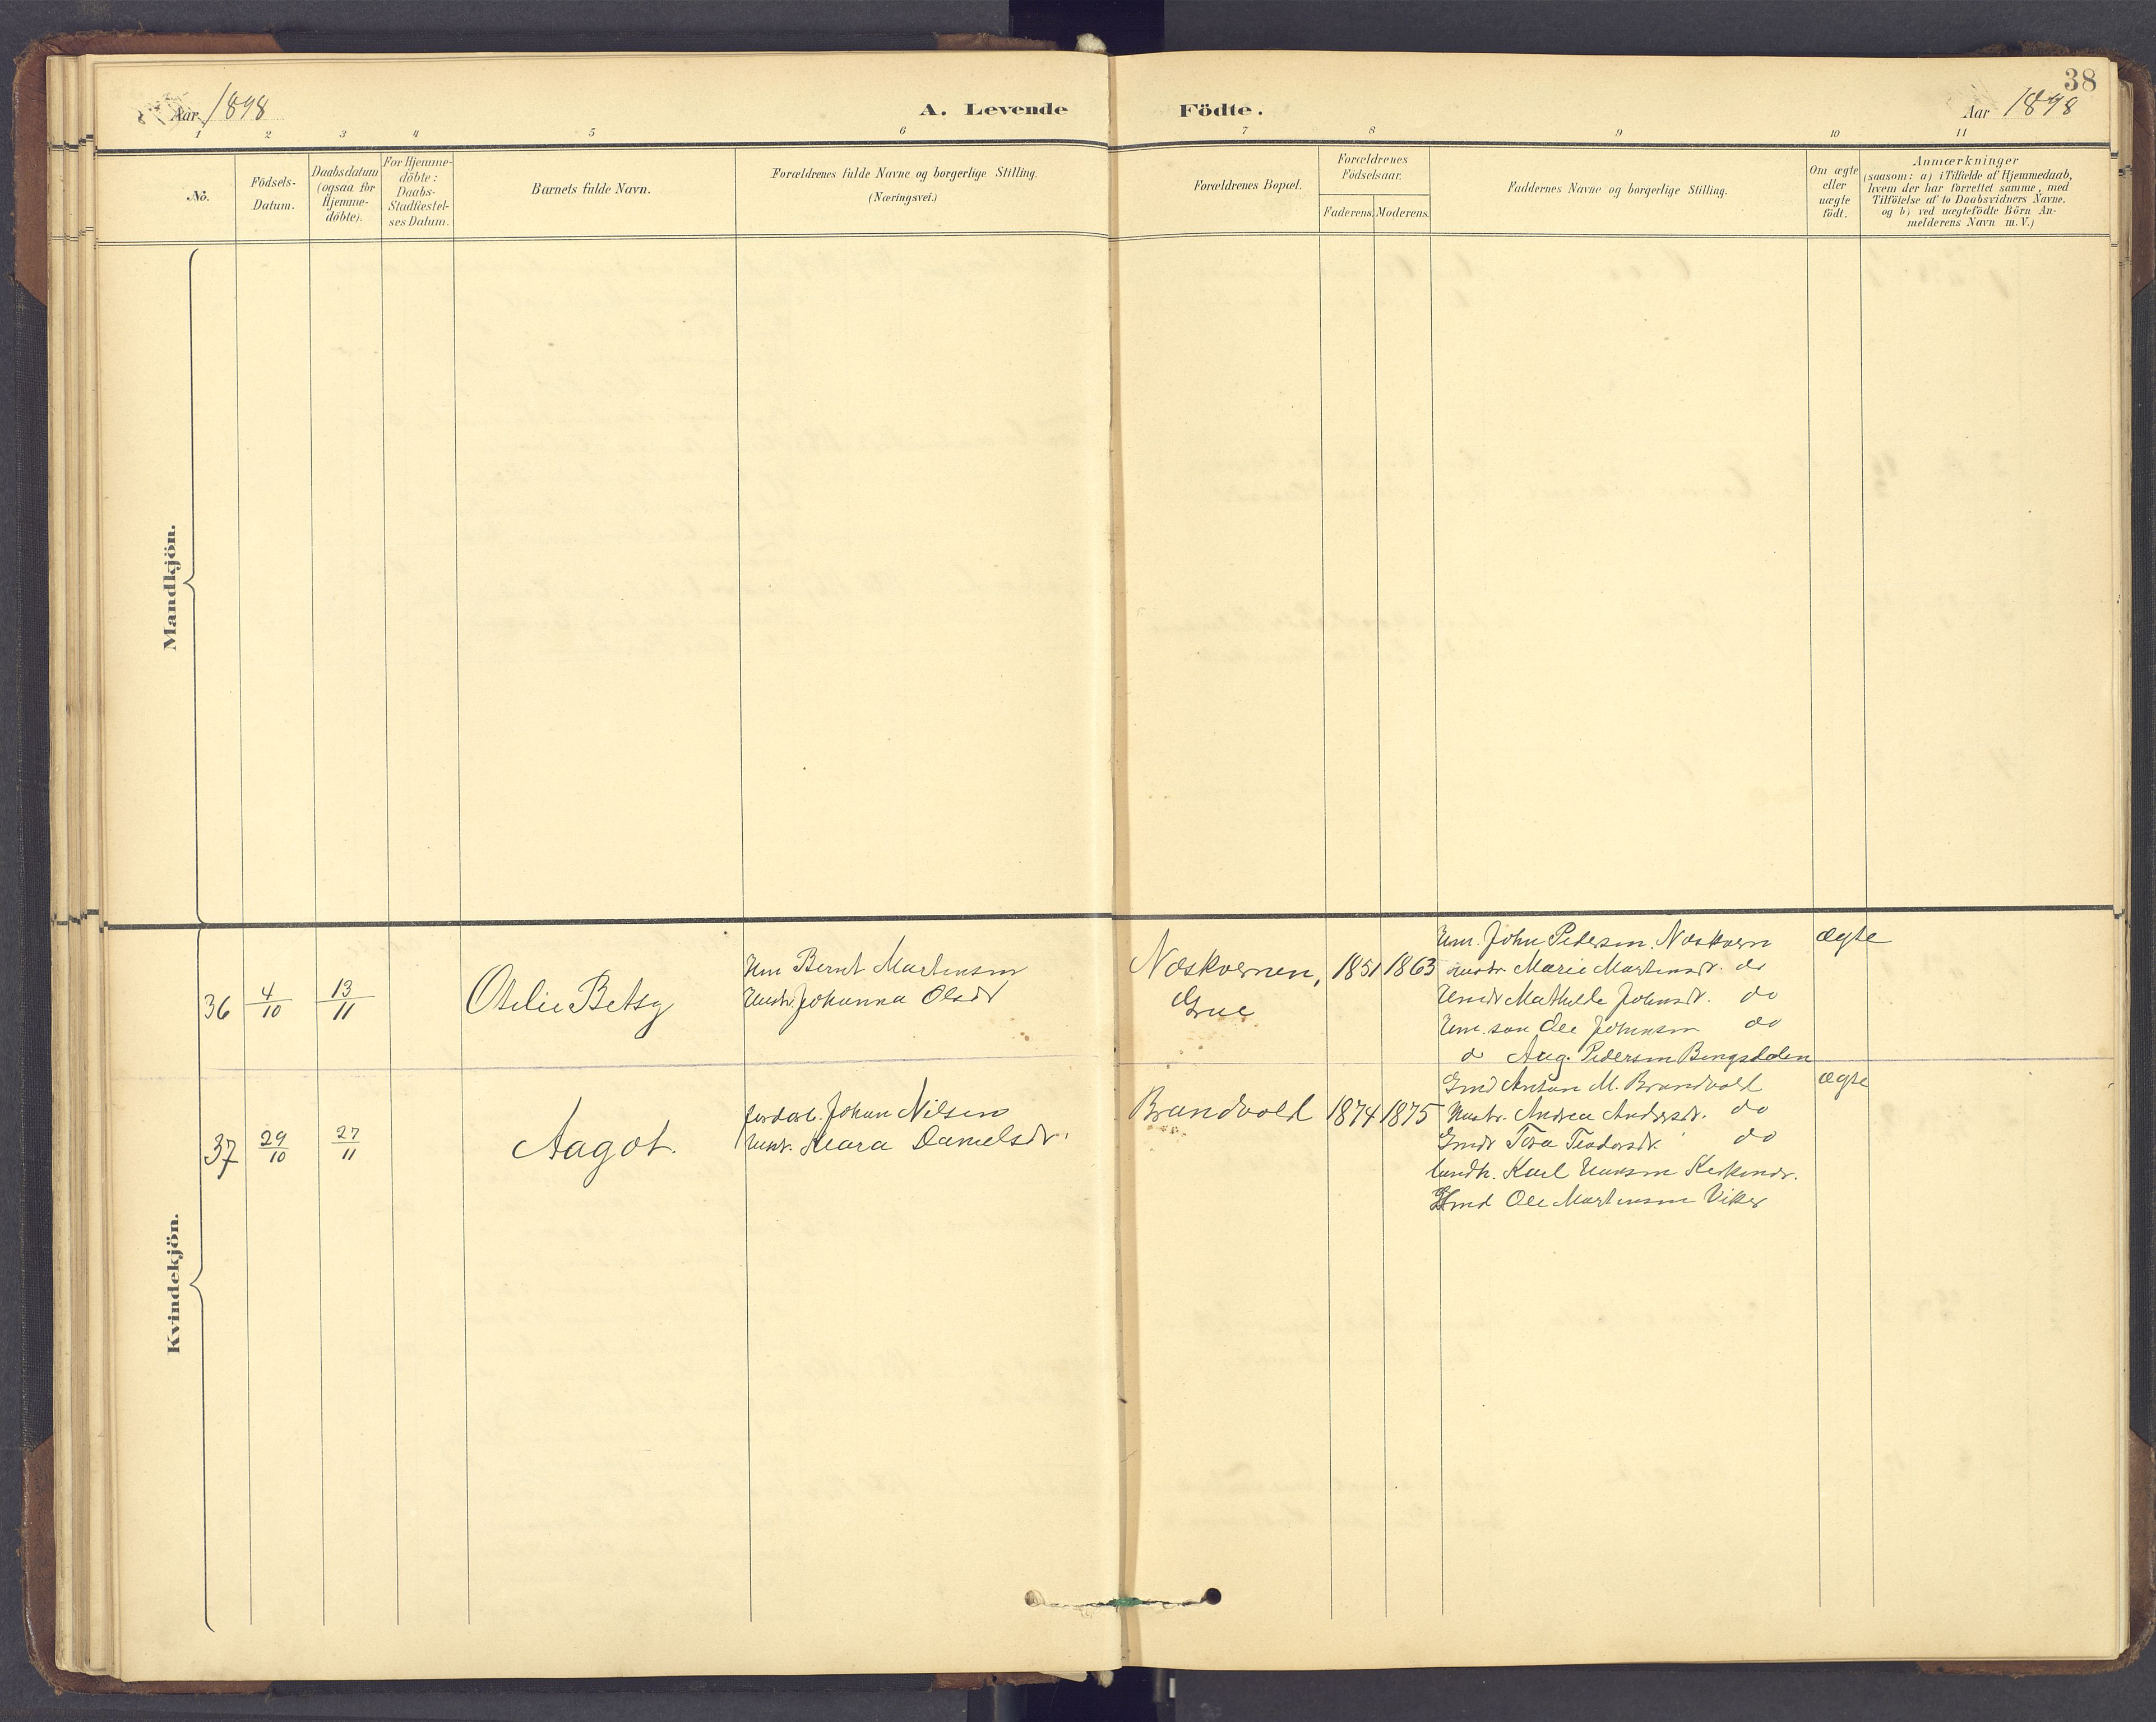 38
Aar 1898
A. Levende Födte.
Aar 1898
1 2 3 4 5 6 7 8 9 10 11
No.
Födsels-
Datum.
Daabsdatum
(ogsaa for
Hjemme-
döbte).
For Hjemme-
döbte:
Daabs-
Stadfæstel-
ses Datum.
Barnets fulde Navn.
Forældrenes fulde Navne og borgerlige Stilling.
(Næringsvei.)
Forældrenes Bopæl.
Forældrenes
Födselsaar.
Faderens. Moderens.
Faddernes Navne og borgerlige Stilling.
Om ægte
eller
uægte
födt.
Anmærkninger
(saasom: a) i Tilfælde af Hjemmedaab,
hvem der har forrettet samme, med
Tilföielse af to Daabsvidners Navne.
og b) ved uægtefödte Börn An-
melderens Navn m. V.)
Mandkjön.
Kvindekjön.
36
4/10
13/11
Otelie Betsy
Hm Bernt Martinsen
Hustr. Johanna Olsdr
Næskvernen,
Grue
1851
1863
Hm. John Pedersen. Næskvern
Hustr. Marie Martinsdr. do
Mathilde Johnsdr. do
Hm. søn Ole Johnsen do
do Aug. Pedersen
ægte
37
29/10
27/11
Aagot.
Johan Nilsen
Hustr. Klara Danielsdr.
Brandvold
1874
1875
Gmd Anton M. Brandvold
Hustr. Andrea Andersdr. do
Gmdr Tora Teodorsdr. do
landh. Karl Hansen
Gmd Ole Martinsen Viker
ægte